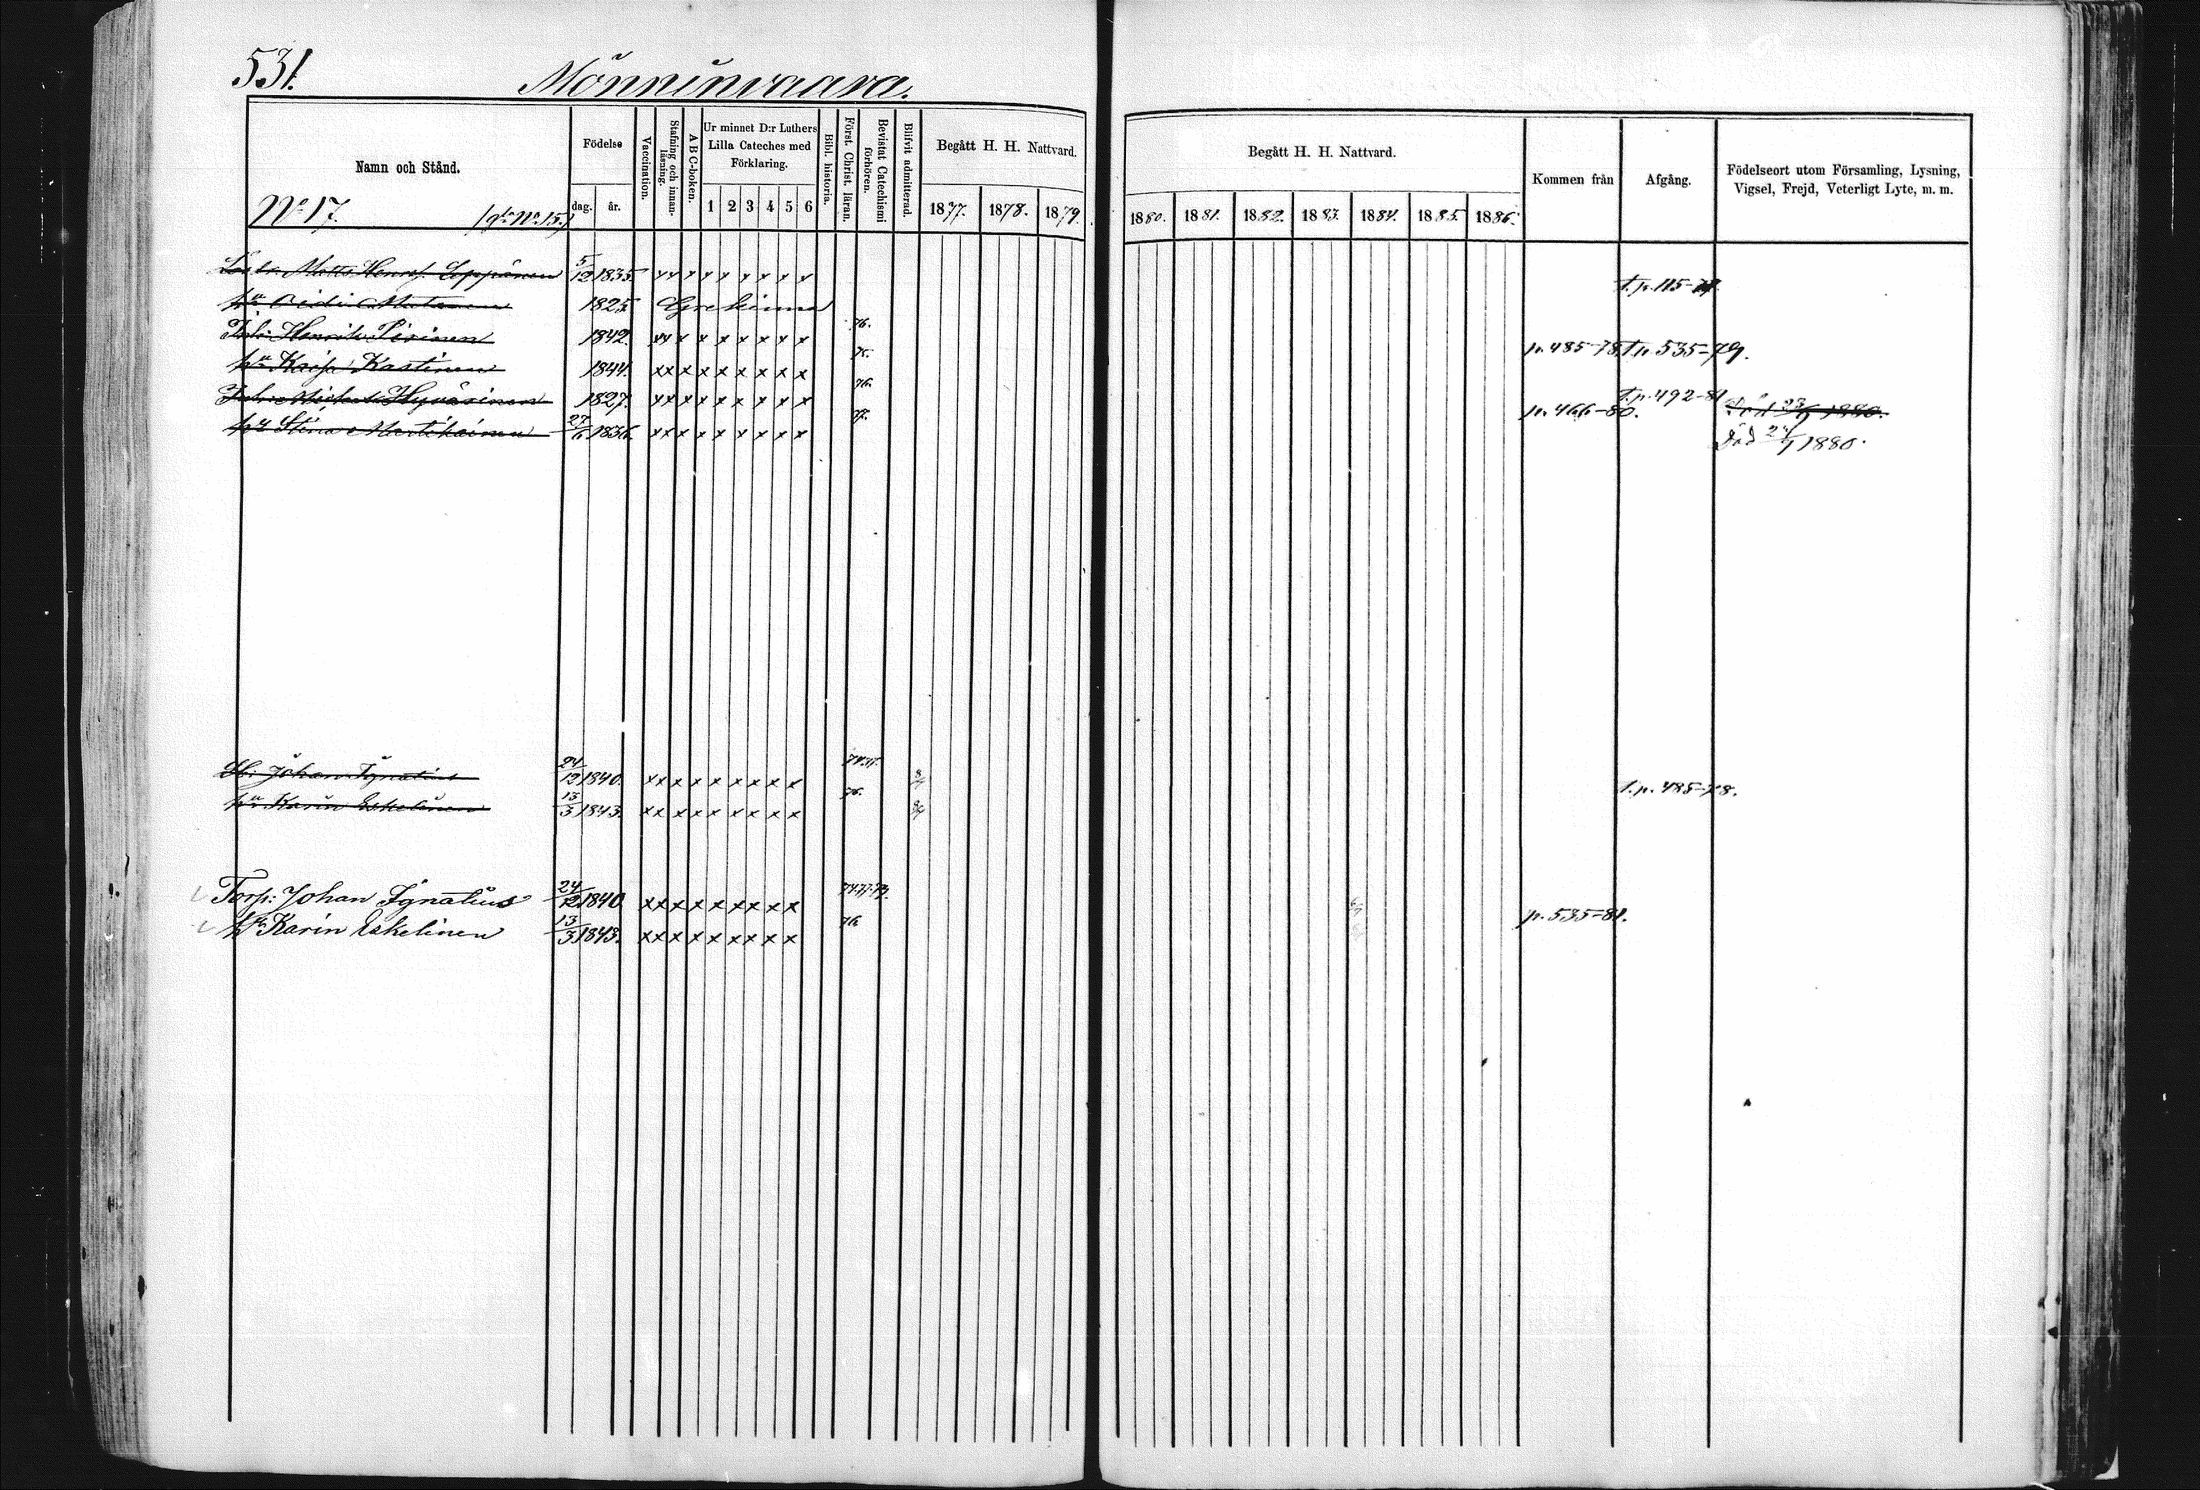 531.
Mönninvaara.
Namn och Stånd.
Födelse
dag.
år.
Vaccination.
Stafning och innanläsning.
A B C-boken.
Ur minnet D:r Luthers Lilla Cateches med Förklaring.
1 2 3 4 5 6
Bibl. historia.
Först. Christ. läran.
Bevistat Catechismi förhören.
Blifvit admitterad.
Begått H. H. Nattvard.
1877. 1878. 1879.
Begått H. H. Nattvard.
1880. 1881. 1882. 1883. 1884. 1885. 1886.
Kommen från
Afgång.
Födelseort utom Församling, Lysning, Vigsel, Frejd, Veterligt Lyte, m. m.
No 17. (gl. No 15.)
Matts Henr: Leppänen 5/12 1835. x x x x x x x x x t. p. 115-
hu 1825. Grekinna
Henrik Pisinen 1842. x x x x x x x x x 76. p. 485-78. t. p. 535-79.
hu Kaisa Kastinen 1844. x x x x x x x x x 75.
Michel Hyväsinen 1827. x x x x x x x x x 76. p. 466-80. t. p. 492-81 Död 1880.
hu Stina Martikainen 27/6 1836. x x x x x x x x x 77. Död 1880.
Johan Ignatius 24/12 1840. x x x x x x x x x t. p. 485-78.
hu Karin Eskelinen 13/3 1843. x x x x x x x x x 76.
Torp: Johan Ignatius 24/12 1840. x x x x x x x x x p. 535-81.
hu Karin Eskelinen 13/3 1843. x x x x x x x x x 76.